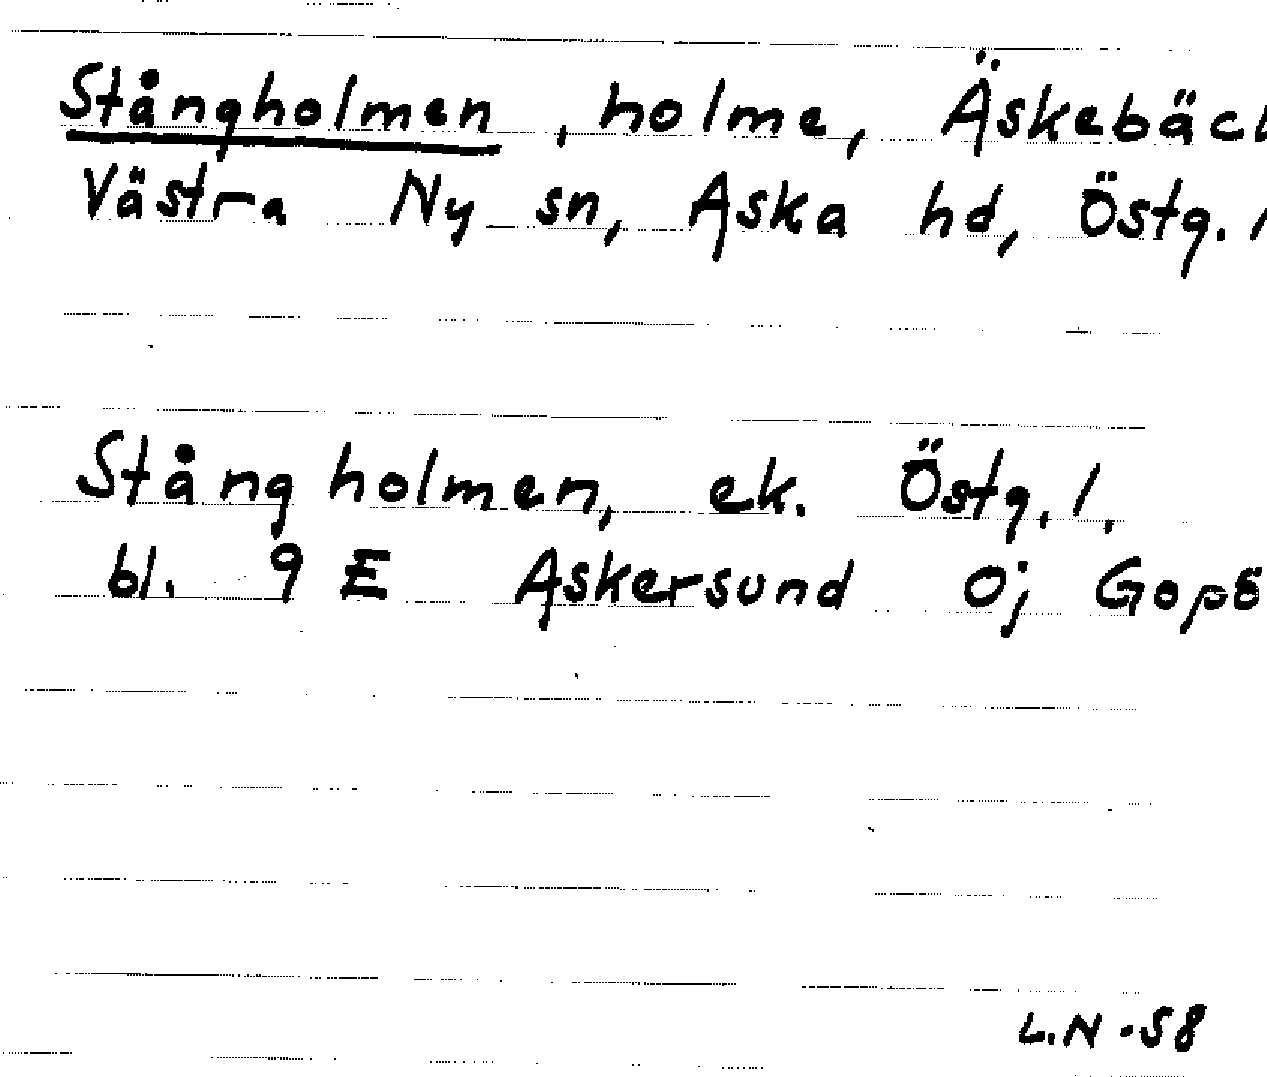 Stångholmen, holme, Äskebäck
Västra Ny sn, Aska hd, Östg. l
Stångholmen, ek. Östg. l.
bl. 9 E Askersund 0j Gopö
L.N -58